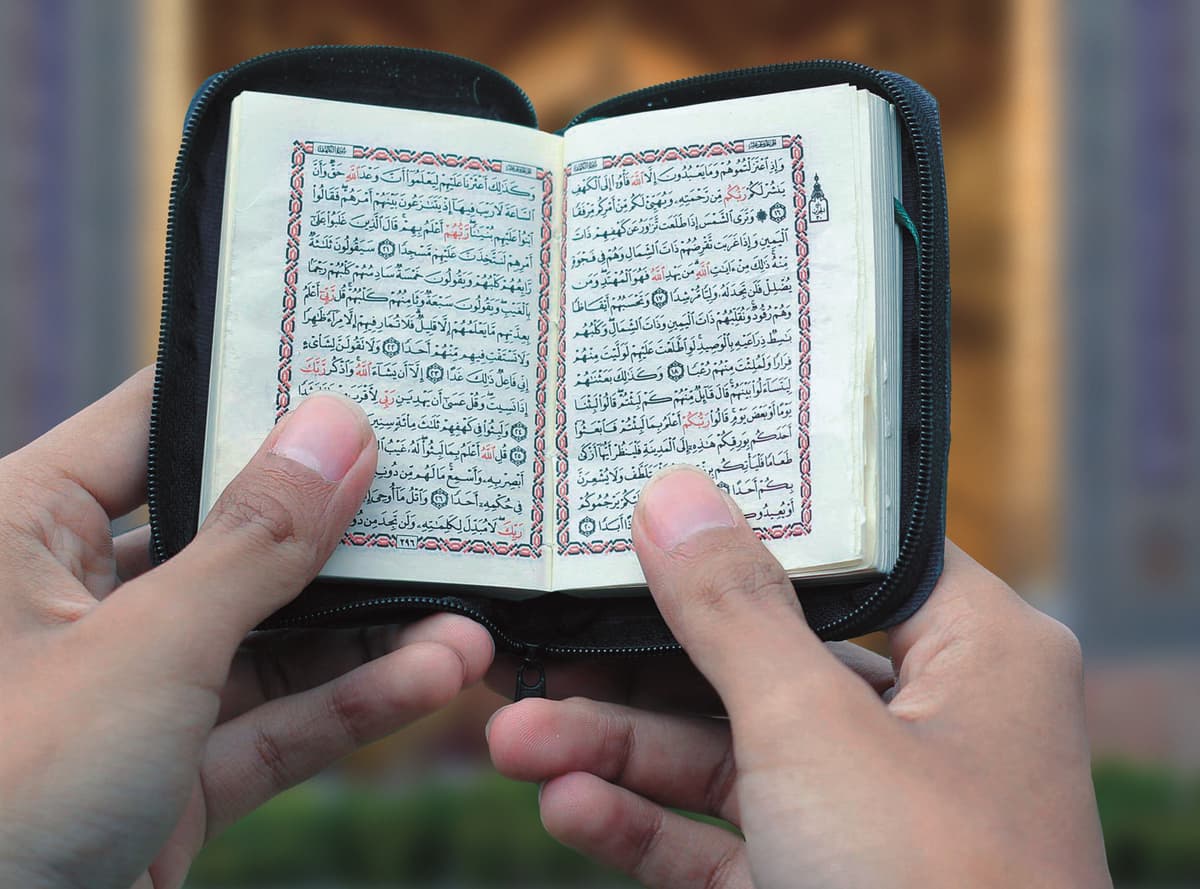 وَإِذِ ٱعْتَزَلْتُمُوهُمْ وَمَا يَعْبُدُونَ إِلَّا ٱللَّهَ فَأْوُۥٓا۟ إِلَى ٱلْكَهْفِ
يَنشُرْ لَكُمْ رَبُّكُم مِّن رَّحْمَتِهِۦ وَيُهَيِّئْ لَكُم مِّنْ أَمْرِكُم مِّرْفَقًا
١٦ ۞ وَتَرَى ٱلشَّمْسَ إِذَا طَلَعَت تَّزَٰوَرُ عَن كَهْفِهِمْ ذَاتَ
ٱلْيَمِينِ وَإِذَا غَرَبَت تَّقْرِضُهُمْ ذَاتَ ٱلشِّمَالِ وَهُمْ فِى فَجْوَةٍ
مِّنْهُ ذَٰلِكَ مِنْ ءَايَٰتِ ٱللَّهِ مَن يَهْدِ ٱللَّهُ فَهُوَ ٱلْمُهْتَدِ وَمَن
يُضْلِلْ فَلَن تَجِدَ لَهُۥ وَلِيًّا مُّرْشِدًا ١٧ وَتَحْسَبُهُمْ أَيْقَاظًا
وَهُمْ رُقُودٌ وَنُقَلِّبُهُمْ ذَاتَ ٱلْيَمِينِ وَذَاتَ ٱلشِّمَالِ وَكَلْبُهُم
بَٰسِطٌ ذِرَاعَيْهِ بِٱلْوَصِيدِ لَوِ ٱطَّلَعْتَ عَلَيْهِمْ لَوَلَّيْتَ مِنْهُمْ
فِرَارًا وَلَمُلِئْتَ مِنْهُمْ رُعْبًا ١٨ وَكَذَٰلِكَ بَعَثْنَٰهُمْ
لِيَتَسَآءَلُوا۟ بَيْنَهُمْ قَالَ قَآئِلٌ مِّنْهُمْ كَمْ لَبِثْتُمْ قَالُوا۟ لَبِثْنَا
يَوْمًا أَوْ بَعْضَ يَوْمٍ قَالُوا۟ رَبُّكُمْ أَعْلَمُ بِمَا لَبِثْتُمْ فَٱبْعَثُوٓا۟
أَحَدَكُم بِوَرِقِكُمْ هَٰذِهِۦٓ إِلَى ٱلْمَدِينَةِ فَلْيَنظُرْ أَيُّهَآ أَزْكَىٰ
طَعَامًا فَلْيَأْتِكُم وَلْيَتَلَطَّفْ وَلَا يُشْعِرَنَّ
بِكُمْ أَحَدًا يَرْجُمُوكُمْ
أَوْ يُعِيدُوكُمْ أَبَدًا ٢٠
وَكَذَٰلِكَ أَعْثَرْنَا عَلَيْهِمْ لِيَعْلَمُوٓا۟ أَنَّ وَعْدَ ٱللَّهِ حَقٌّ وَأَنَّ
ٱلسَّاعَةَ لَا رَيْبَ فِيهَآ إِذْ يَتَنَٰزَعُونَ بَيْنَهُمْ أَمْرَهُمْ فَقَالُوا۟
ٱبْنُوا۟ عَلَيْهِم بُنْيَٰنًا رَّبُّهُمْ أَعْلَمُ بِهِمْ قَالَ ٱلَّذِينَ غَلَبُوا۟ عَلَىٰٓ
أَمْرِهِمْ لَنَتَّخِذَنَّ عَلَيْهِم مَّسْجِدًا ٢١ سَيَقُولُونَ ثَلَٰثَةٌ
رَّابِعُهُمْ كَلْبُهُمْ وَيَقُولُونَ خَمْسَةٌ سَادِسُهُمْ كَلْبُهُمْ رَجْمًۢا
بِٱلْغَيْبِ وَيَقُولُونَ سَبْعَةٌ وَثَامِنُهُمْ كَلْبُهُمْ قُل رَّبِّىٓ أَعْلَمُ
بِعِدَّتِهِم مَّا يَعْلَمُهُمْ إِلَّا قَلِيلٌ فَلَا تُمَارِ فِيهِمْ إِلَّا مِرَآءً ظَٰهِرًا
وَلَا تَسْتَفْتِ فِيهِم مِّنْهُمْ أَحَدًا ٢٢ وَلَا تَقُولَنَّ لِشَا۟ىْءٍ
إِنِّى فَاعِلٌ ذَٰلِكَ غَدًا ٢٣ إِلَّآ أَن يَشَآءَ ٱللَّهُ وَٱذْكُر رَّبَّكَ
إِذَا نَسِيتَ وَقُلْ عَسَىٰٓ أَن يَهْدِيَنِ رَبِّى لِأَقْرَبَ
٢٤ وَلَبِثُوا۟ فِى كَهْفِهِمْ ثَلَٰثَ مِا۟ئَةٍ سِنِينَ
٢٥ قُلِ ٱللَّهُ أَعْلَمُ بِمَا لَبِثُوا۟ لَهُۥ غَيْبُ
أَبْصِرْ بِهِۦ وَأَسْمِعْ مَا لَهُم مِّن دُونِهِۦ
فِى حُكْمِهِۦٓ أَحَدًا ٢٦ وَٱتْلُ مَآ أُوحِىَ
رَبِّكَ لَا مُبَدِّلَ لِكَلِمَٰتِهِۦ وَلَن تَجِدَ مِن
٢٩٦